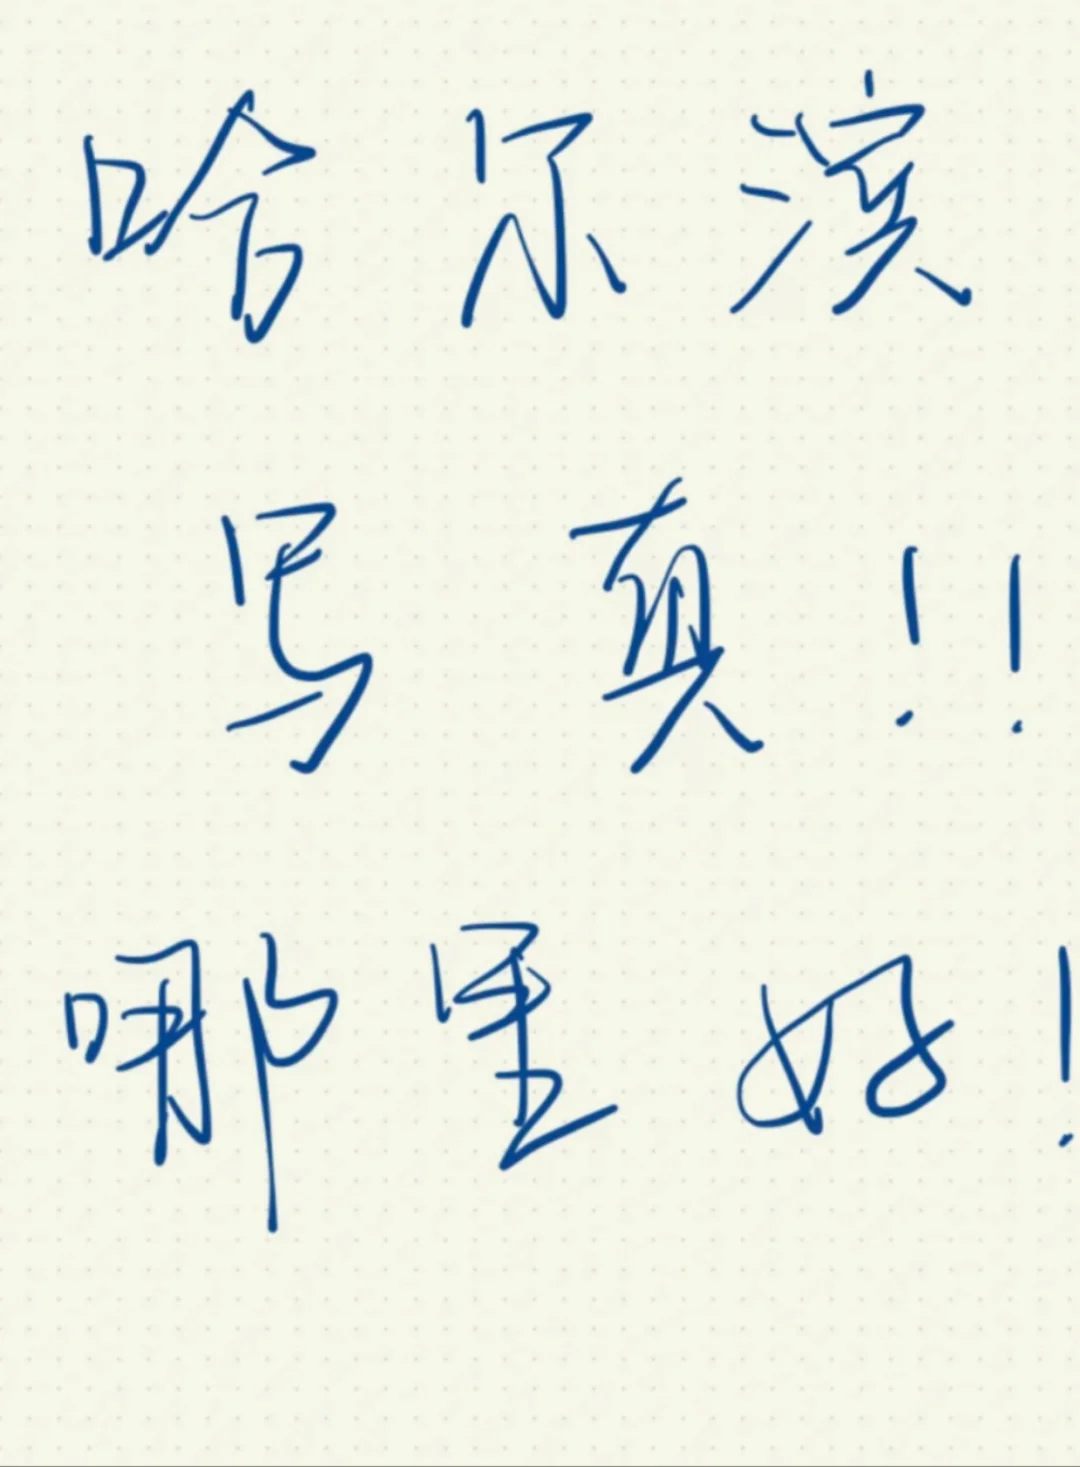 哈尔滨
写真!!
哪里好!